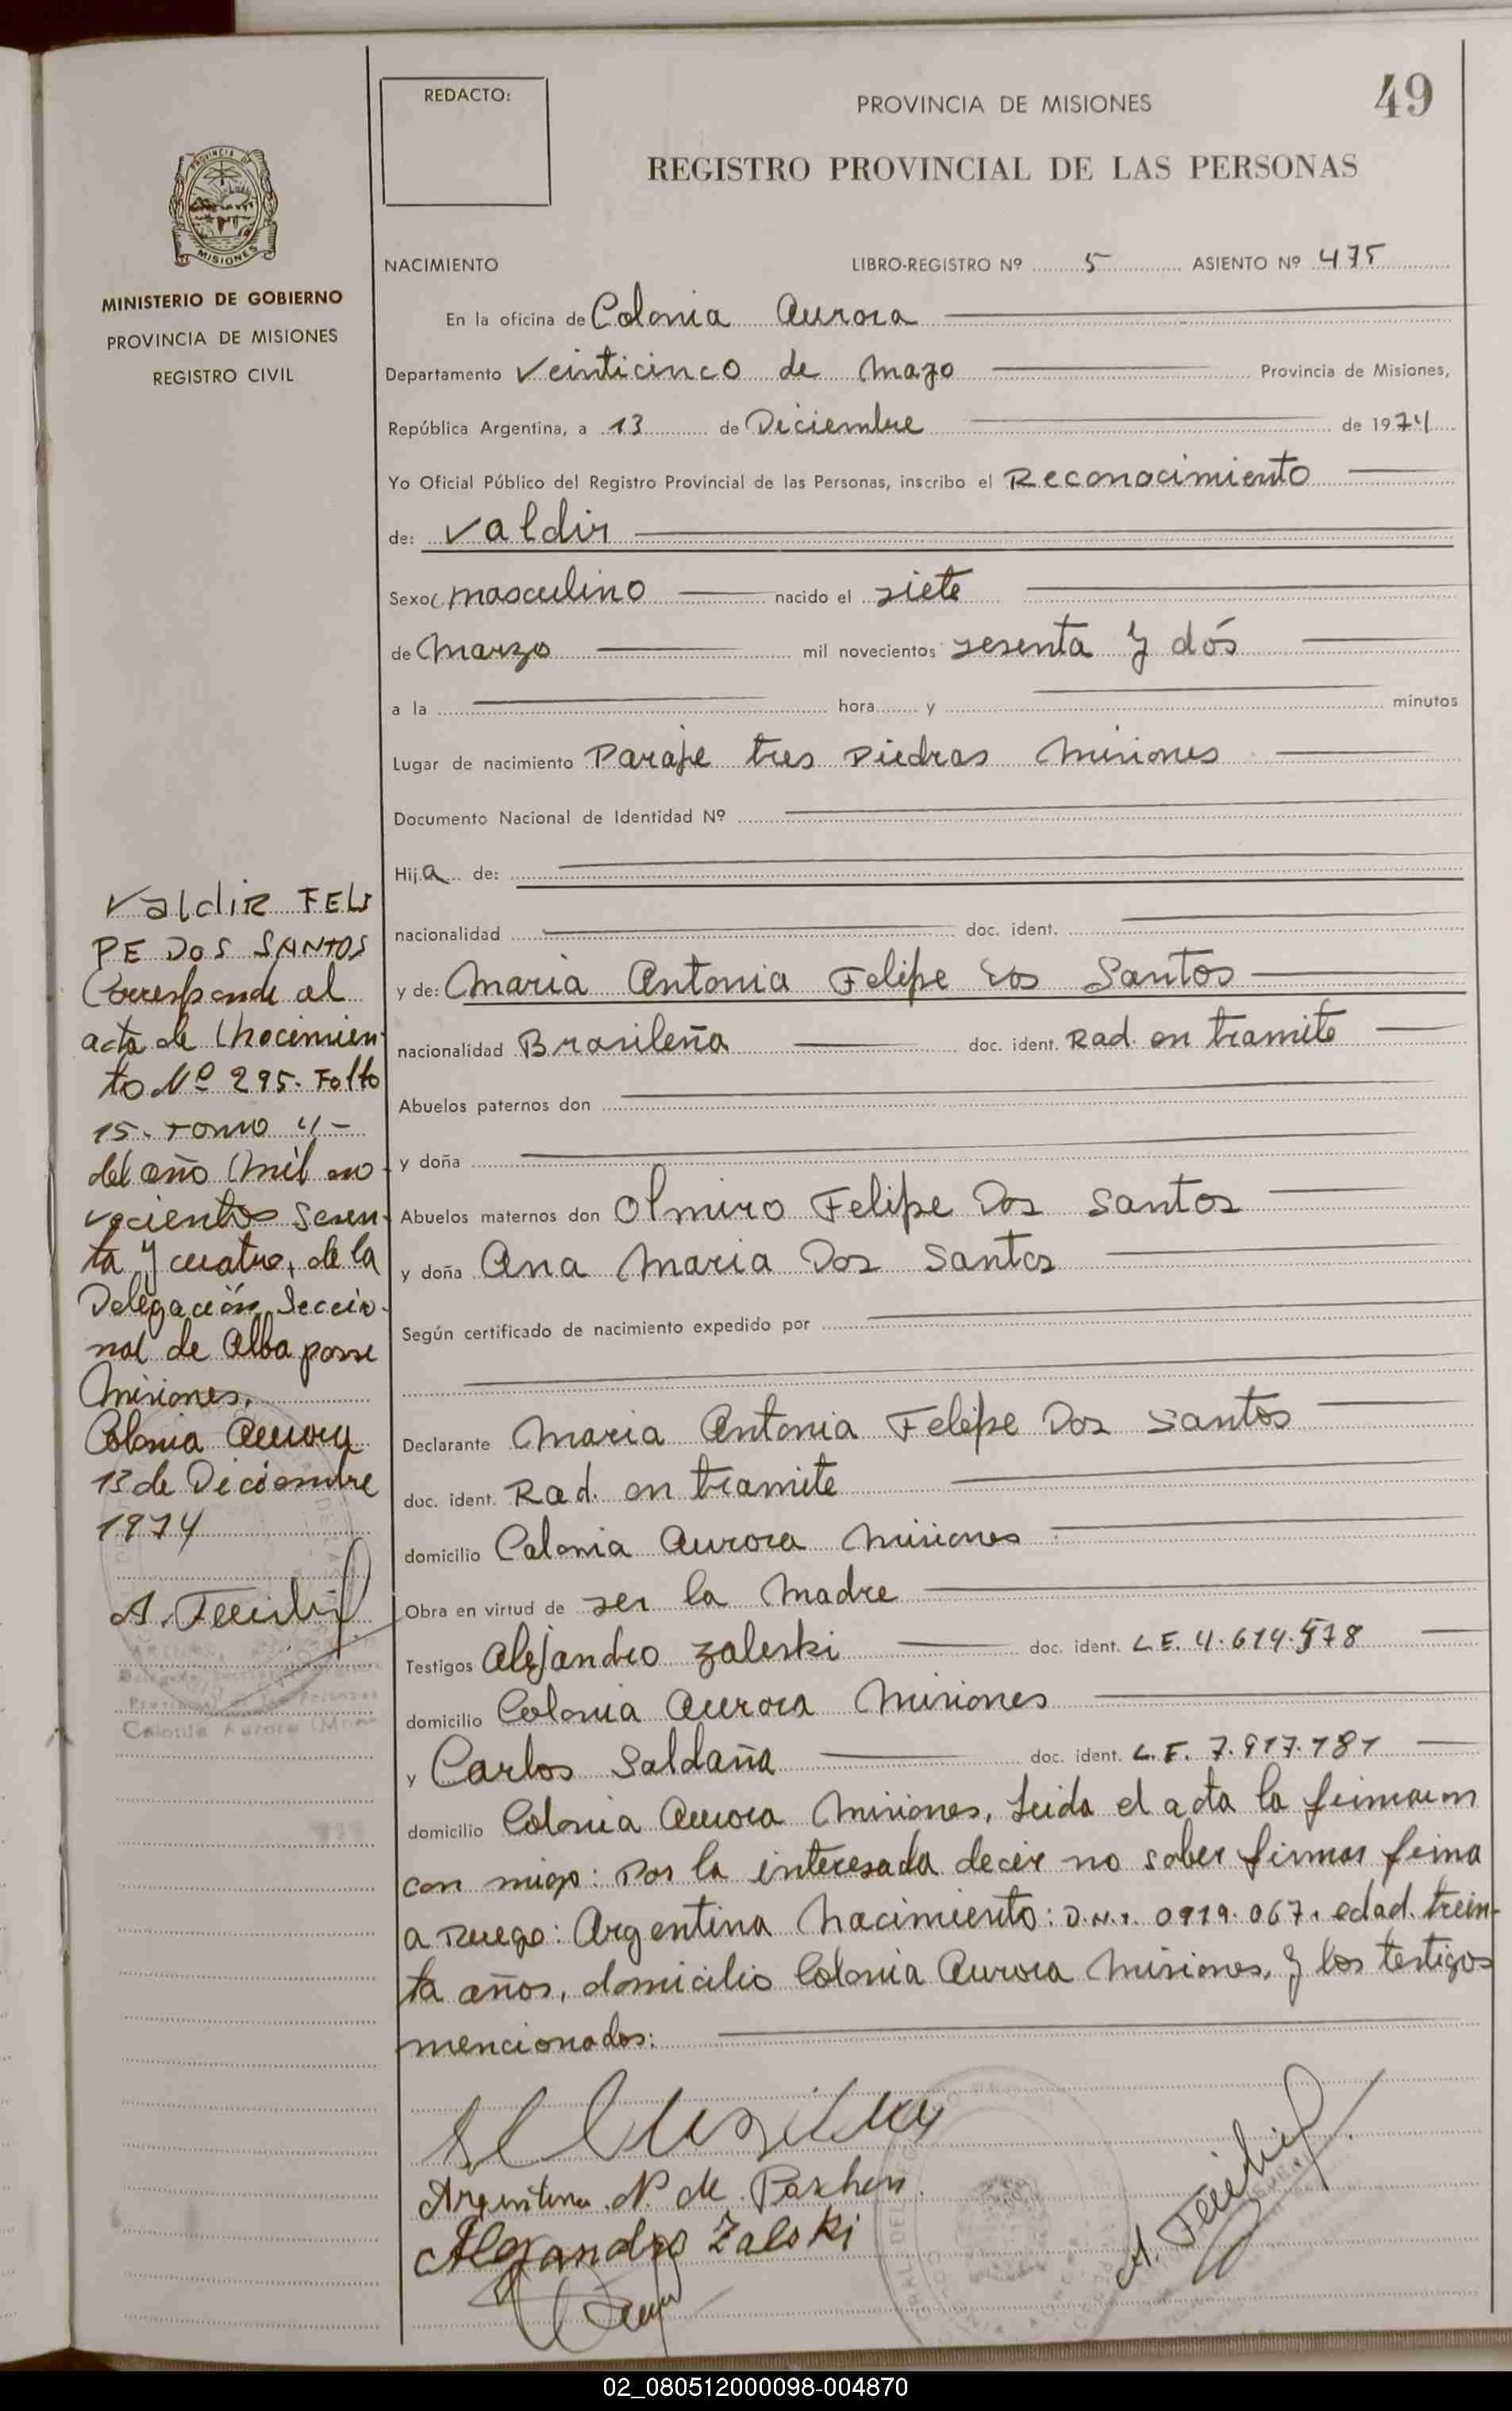 REDACTO:
PROVINCIA DE MISIONES
49
REGISTRO PROVINCIAL DE LAS PERSONAS
PROVINCIA
MISIONES
MINISTERIO DE GOBIERNO
PROVINCIA DE MISIONES
REGISTRO CIVIL
NACIMIENTO LIBRO-REGISTRO Nº 5 ASIENTO Nº 475
En la oficina de Colonia Aurora
Departamento Veinticinco de Mayo Provincia de Misiones,
República Argentina, a 13 de Diciembre de 1974
Yo Oficial Público del Registro Provincial de las Personas, inscribo el Reconocimiento
de: Valdir
Sexo masculino nacido el siete
de Marzo mil novecientos sesenta y dós
a la hora y minutos
Lugar de nacimiento Paraje tres Piedras Misiones
Documento Nacional de Identidad Nº
Hija de:
nacionalidad doc. ident.
y de: Maria Antonia Felipe Dos Santos
nacionalidad Brasileña doc. ident. Rad. en tramite
Abuelos paternos don
y doña
Abuelos maternos don Olmiro Felipe Dos Santos
y doña Ana Maria Dos Santos
Según certificado de nacimiento expedido por
Declarante Maria Antonia Felipe Dos Santos
doc. ident. Rad. en tramite
domicilio Colonia Aurora Misiones
Obra en virtud de ser la Madre
Testigos Alejandro Zaleski doc. ident. L.E. 4.614.578
domicilio Colonia Aurora Misiones
y Carlos Saldaña doc. ident. L.E. 7.917.181
domicilio Colonia Aurora Misiones, Leida el acta la firmaron
con migo: Por la interesada decir no saber firmar firma
a Ruego: Argentina Nacimiento: D.N.I. 0919.067. edad. trein-
ta años, domicilio Colonia Aurora Misiones, y los testigos
mencionados:
Valdir FELI
PE DOS SANTOS
Corresponde al
acta de Nacimien-
to Nº 295. Folto
15. Tomo 4-
del año Mil no-
vecientos Sesen-
ta y cuatro, de la
Delegación Seccio-
nal de Alba posse
Misiones.
Colonia Aurora
13 de Diciembre
1974
Colonia Aurora
Argentina N. de
Alejandro Zaleski
02_080512000098-004870